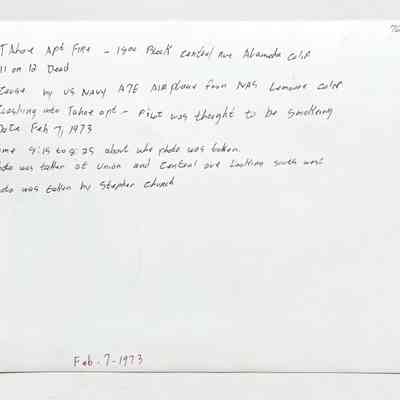 T Ahoe Apt Fire - 1800 Block Central Ave Alameda Calif
11 on 12 Dead
cause by US NAVY A7E AIRplane from NAS Lemoore Calif
Crashing into Tahoe apt - Pilot was thought to be smokeing
Date Feb 7, 1973
8:15 to 8:25 about whe photo was taken.
was taken at Union and Central ave Looking south west
was taken by Stephen Church
Feb-7-1973